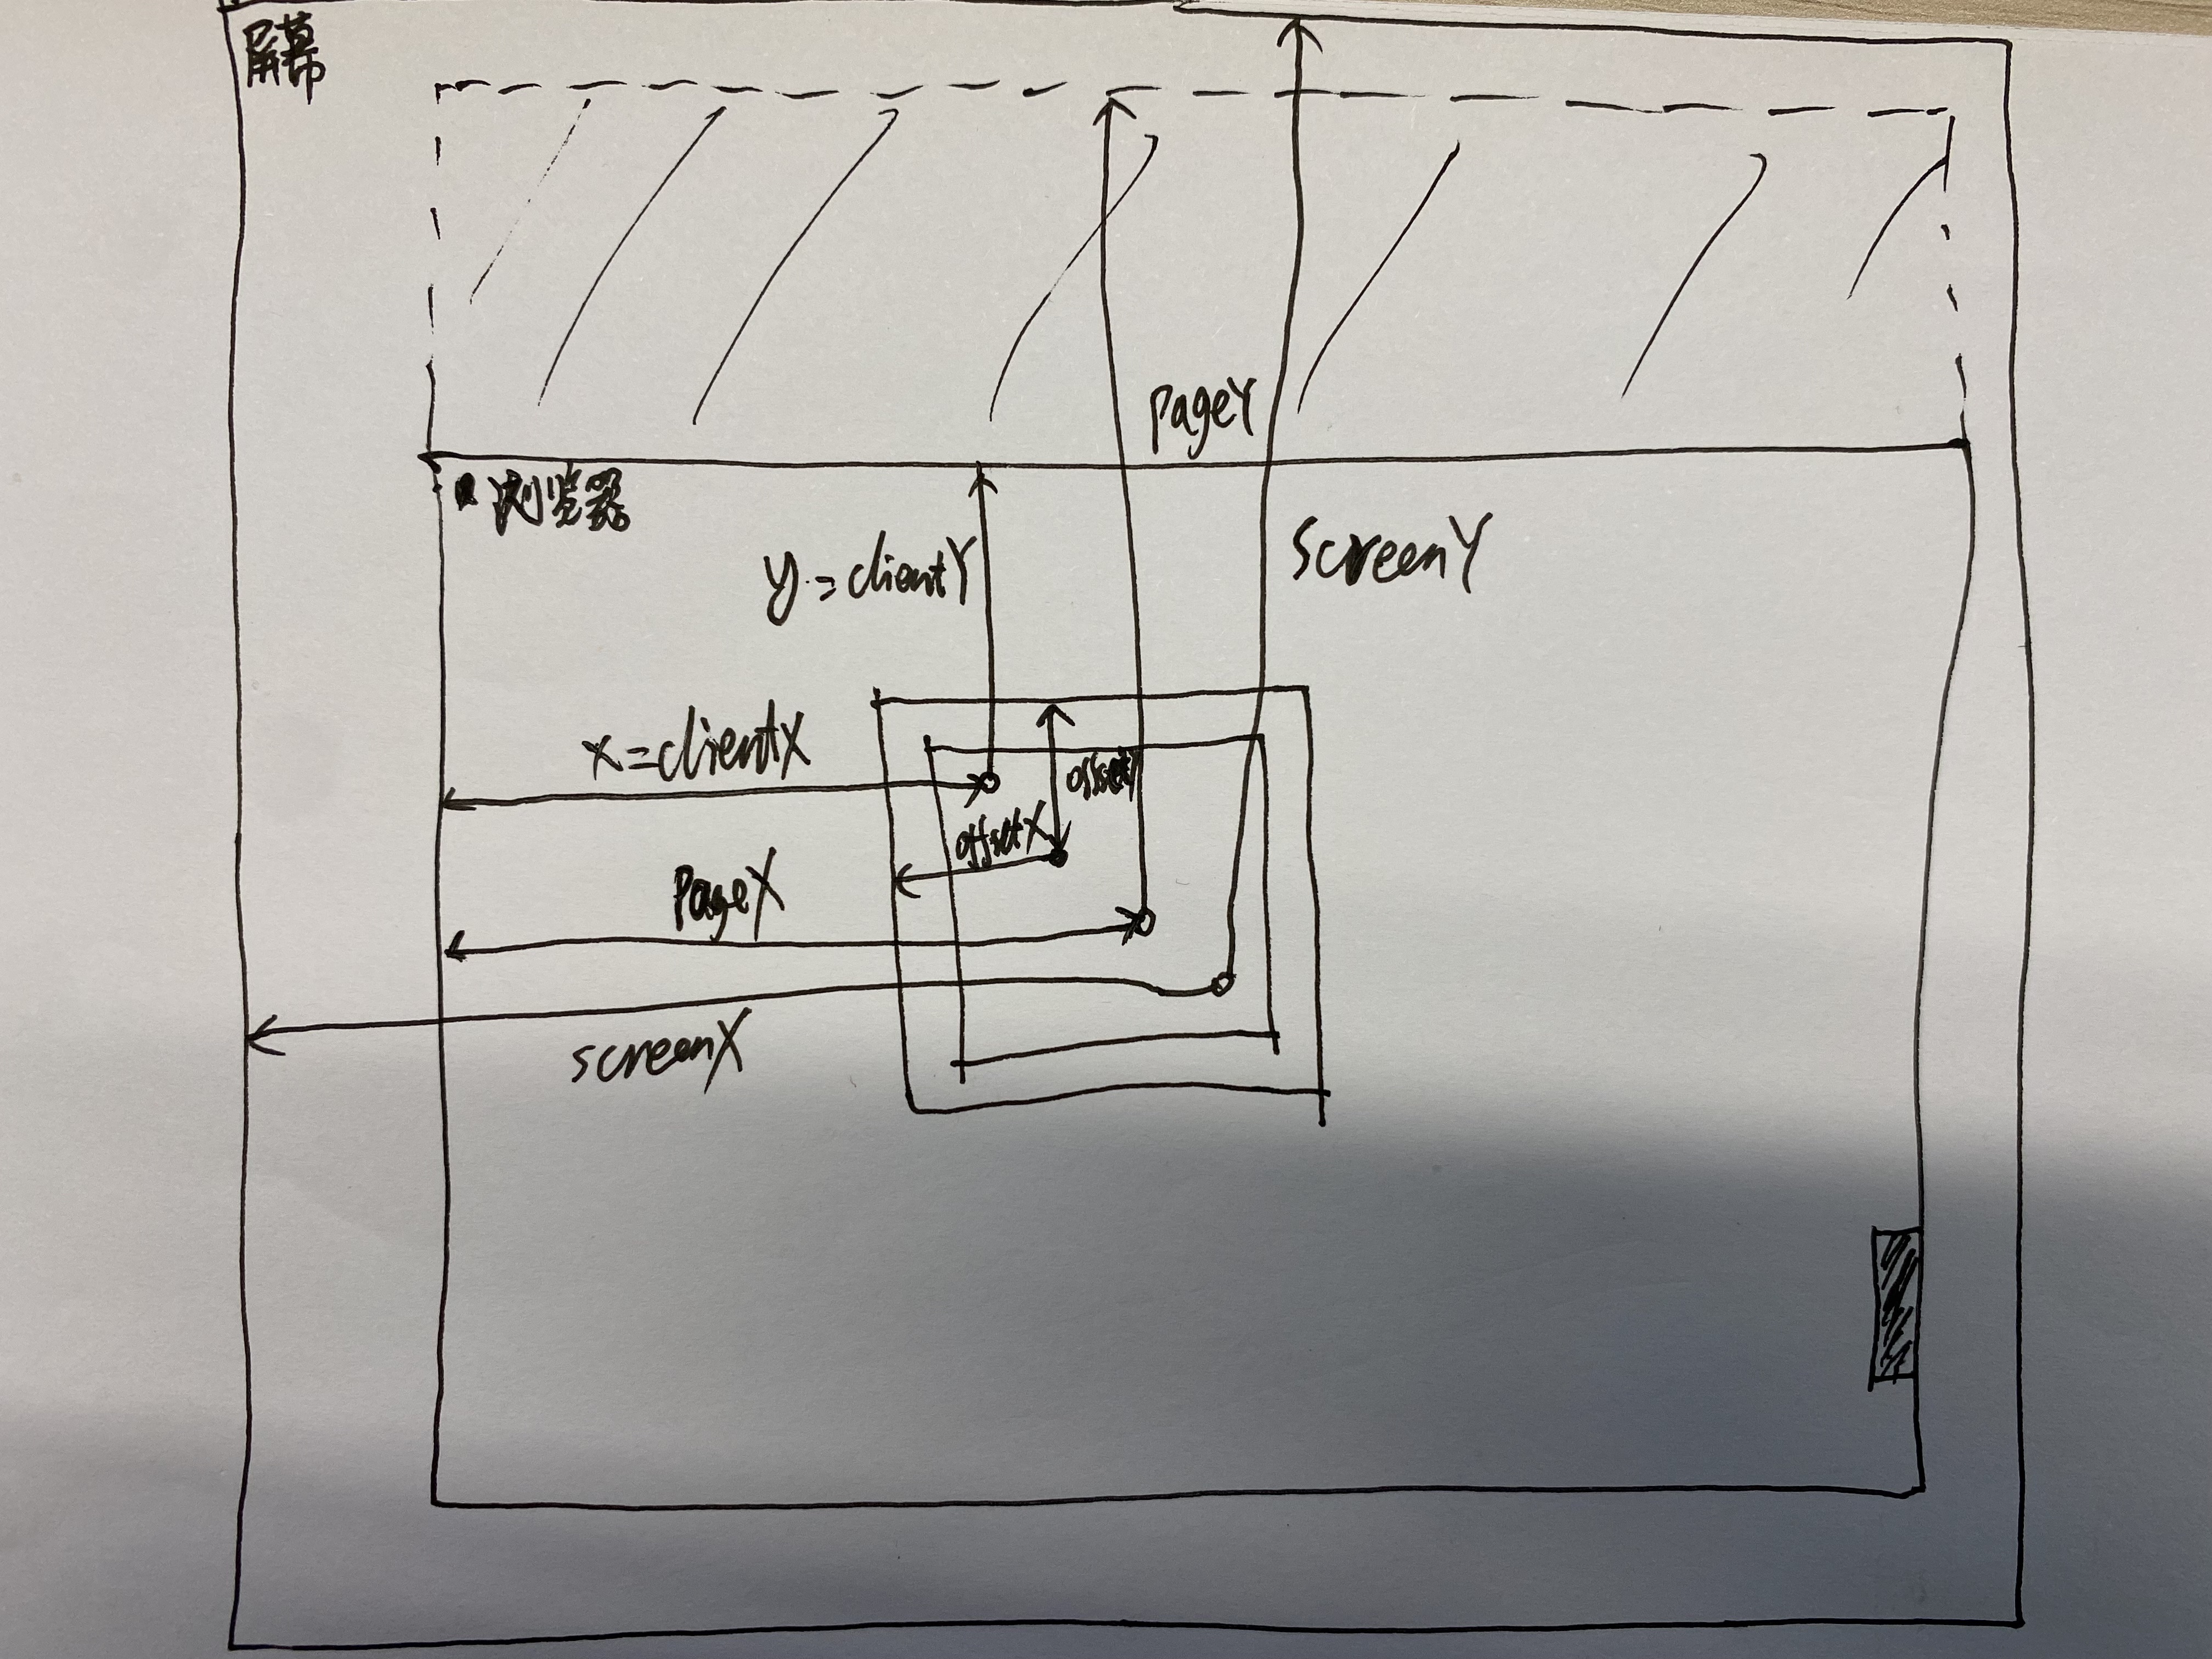 屏幕
PageY
浏览器
y=clientY
screenY
x=clientX
offsetY
offsetX
PageX
screenX